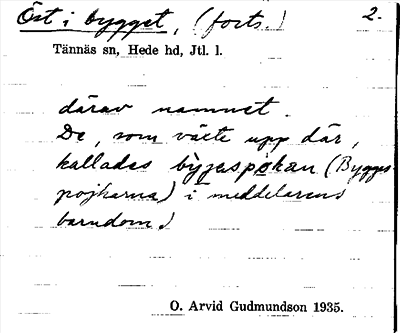 Öst i bygget, (forts.) 2.
Tännäs sn, Hede hd, Jtl. l.
därav namnet.
De, som växte upp där,
kallades byggaspökan (Bygges-
pojkarna) i meddelarens
barndom.)
O. Arvid Gudmundson 1935.